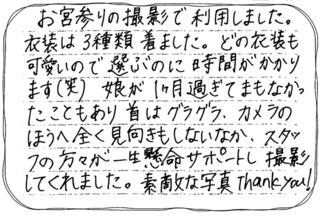 お宮参りの撮影で利用しました。
衣装は3種類着ました。どの衣装も
可愛いので選ぶのに時間がかかり
ます(笑) 娘が1ヶ月過ぎてまもなかっ
たこともあり首はグラグラ、カメラの
ほうへ全く見向きもしないなか、スタッ
フの方々が一生懸命サポートし撮影
してくれました。素敵な写真Thank you!